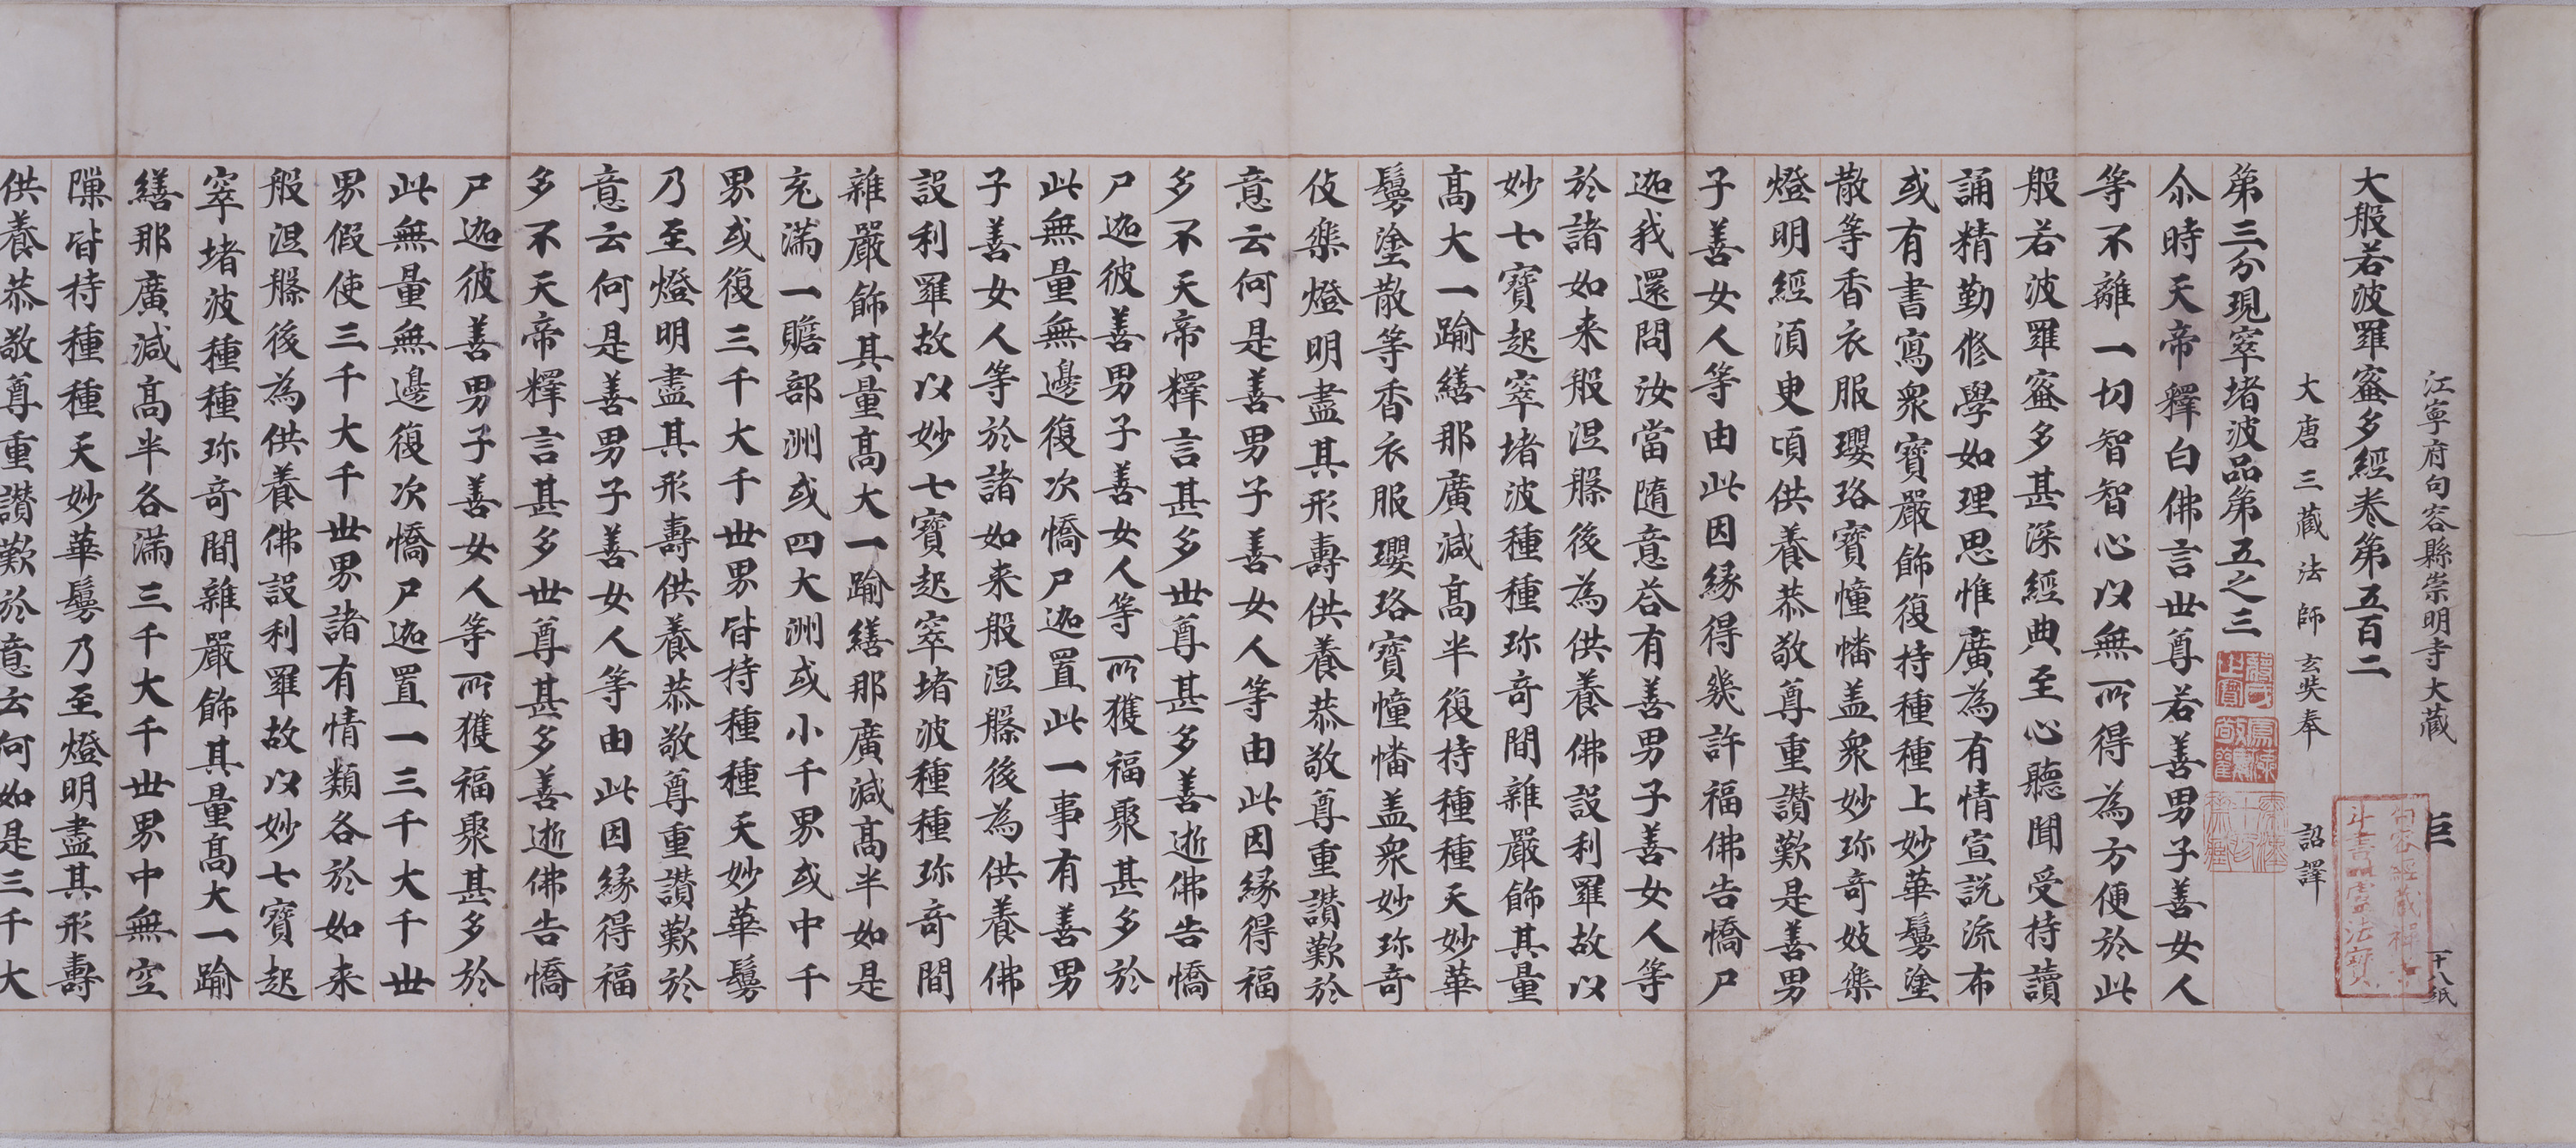 江寧府句容縣崇明寺大藏 巨 十八紙
大般若波羅蜜多經卷第五百二
大唐三藏法師玄奘奉 詔譯
第三分現窣堵波品第五之三
尒時天帝釋白佛言世尊若善男子善女人
等不離一切智智心以無所得為方便於此
般若波羅蜜多甚深經典至心聽聞受持讀
誦精勤修學如理思惟廣為有情宣說流布
或有書寫衆寶嚴飾復持種種上妙華鬘塗
散等香衣服瓔珞寶幢幡盖衆妙珎竒妓樂
燈明經須臾頃供養恭敬尊重讚歎是善男
子善女人等由此因緣得幾許福佛告憍尸
迦我還問汝當隨意荅有善男子善女人等
於諸如来般涅槃後為供養佛設利羅故以
妙七寶起窣堵波種種珎竒間雜嚴飾其量
髙大一踰繕那廣減髙半復持種種天妙華
鬘塗散等香衣服瓔珞寶幢幡盖衆妙珎竒
伎樂燈明盡其形壽供養恭敬尊重讚歎於
意云何是善男子善女人等由此因緣得福
多不天帝釋言甚多世尊甚多善逝佛告憍
尸迦彼善男子善女人等所獲福聚甚多於
此無量無邊復次憍尸迦置此一事有善男
子善女人等於諸如来般涅槃後為供養佛
設利羅故以妙七寶起窣堵波種種珎竒間
雜嚴飾其量髙大一踰繕那廣減髙半如是
充滿一贍部洲或四大洲或小千界或中千
界或復三千大千世界皆持種種天妙華鬘
乃至燈明盡其形壽供養恭敬尊重讚歎於
意云何是善男子善女人等由此因緣得福
多不天帝釋言甚多世尊甚多善逝佛告憍
尸迦彼善男子善女人等所獲福聚甚多於
此無量無邊復次憍尸迦置一三千大千世
界假使三千大千世界諸有情類各於如来
般涅槃後為供養佛設利羅故以妙七寶起
窣堵波種種珎竒間雜嚴飾其量髙大一踰
繕那廣減髙半各滿三千大千世界中無空
隟皆持種種天妙華鬘乃至燈明盡其形壽
供養恭敬尊重讚歎於意云何如是三千大